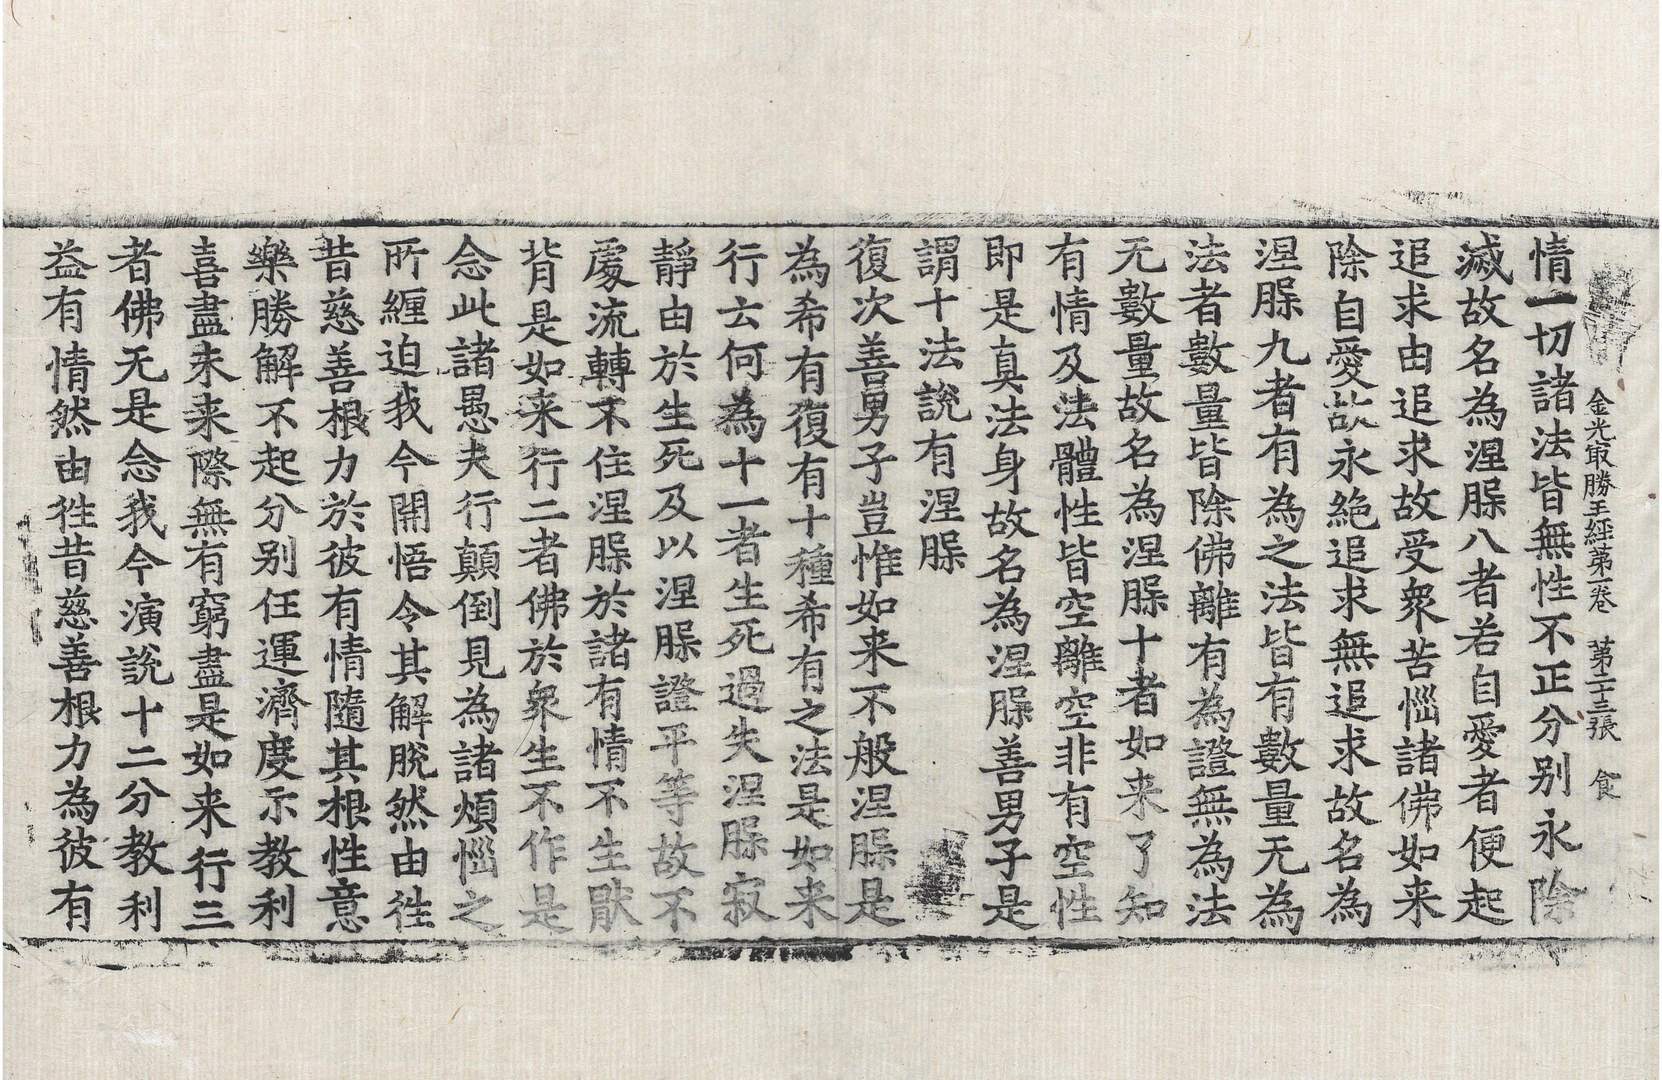 金光㝡勝王經第一卷　第二十三張　食
情一切諸法皆無性不正分別永除
滅故名為涅槃八者若自愛者便起
追求由追求故受衆苦惱諸佛如来
除自愛故永絶追求無追求故名為
涅槃九者有為之法皆有數量无為
法者數量皆除佛離有為證無為法
无數量故名為涅槃十者如来了知
有情及法體性皆空離空非有空性
即是真法身故名為涅槃善男子是
謂十法說有涅槃
復次善男子豈惟如来不般涅槃是
為希有復有十種希有之法是如来
行云何為十一者生死過失涅槃寂
靜由於生死及以涅槃證平等故不
處流轉不住涅槃於諸有情不生猒
背是如来行二者佛於衆生不作是
念此諸愚夫行顛倒見為諸煩惱之
所纏迫我今開悟令其解脫然由徃
昔慈善根力於彼有情隨其根性意
樂勝解不起分别任運濟度示教利
喜盡未来際無有窮盡是如来行三
者佛无是念我今演說十二分教利
益有情然由徃昔慈善根力為彼有